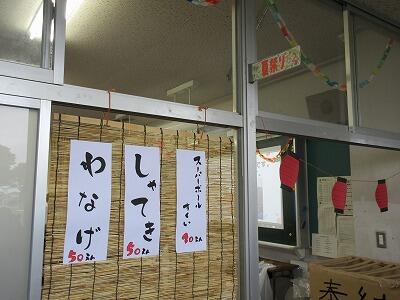 夏祭り
わなげ
50えん
しゃてき
50えん
スーパーボール
すくい
30えん
奉納